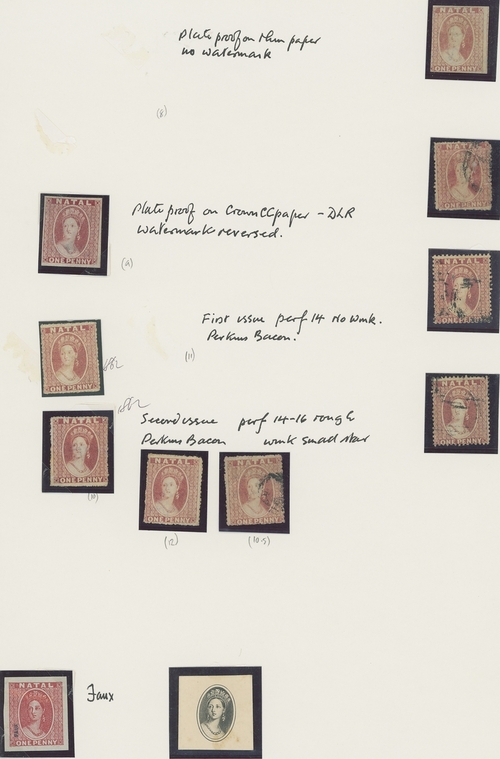 NATAL
ONE PENNY
Plate proof on thin paper
no watermark
(8)
NATAL
ONE PENNY
Plate proof on Crown CC paper - DLR
watermark reversed.
(9)
NATAL
ONE PENNY
First issue perf 14 No wmk.
Perkins Bacon.
(11)
NATAL
ONE PENNY
Second issue perf 14-16 rough
Perkins Bacon wmk small star
NATAL
ONE PENNY
(10)
NATAL
ONE PENNY
(12)
NATAL
ONE PENNY
(10.5)
NATAL
ONE PENNY
NATAL
ONE PENNY
NATAL
ONE PENNY
Faux